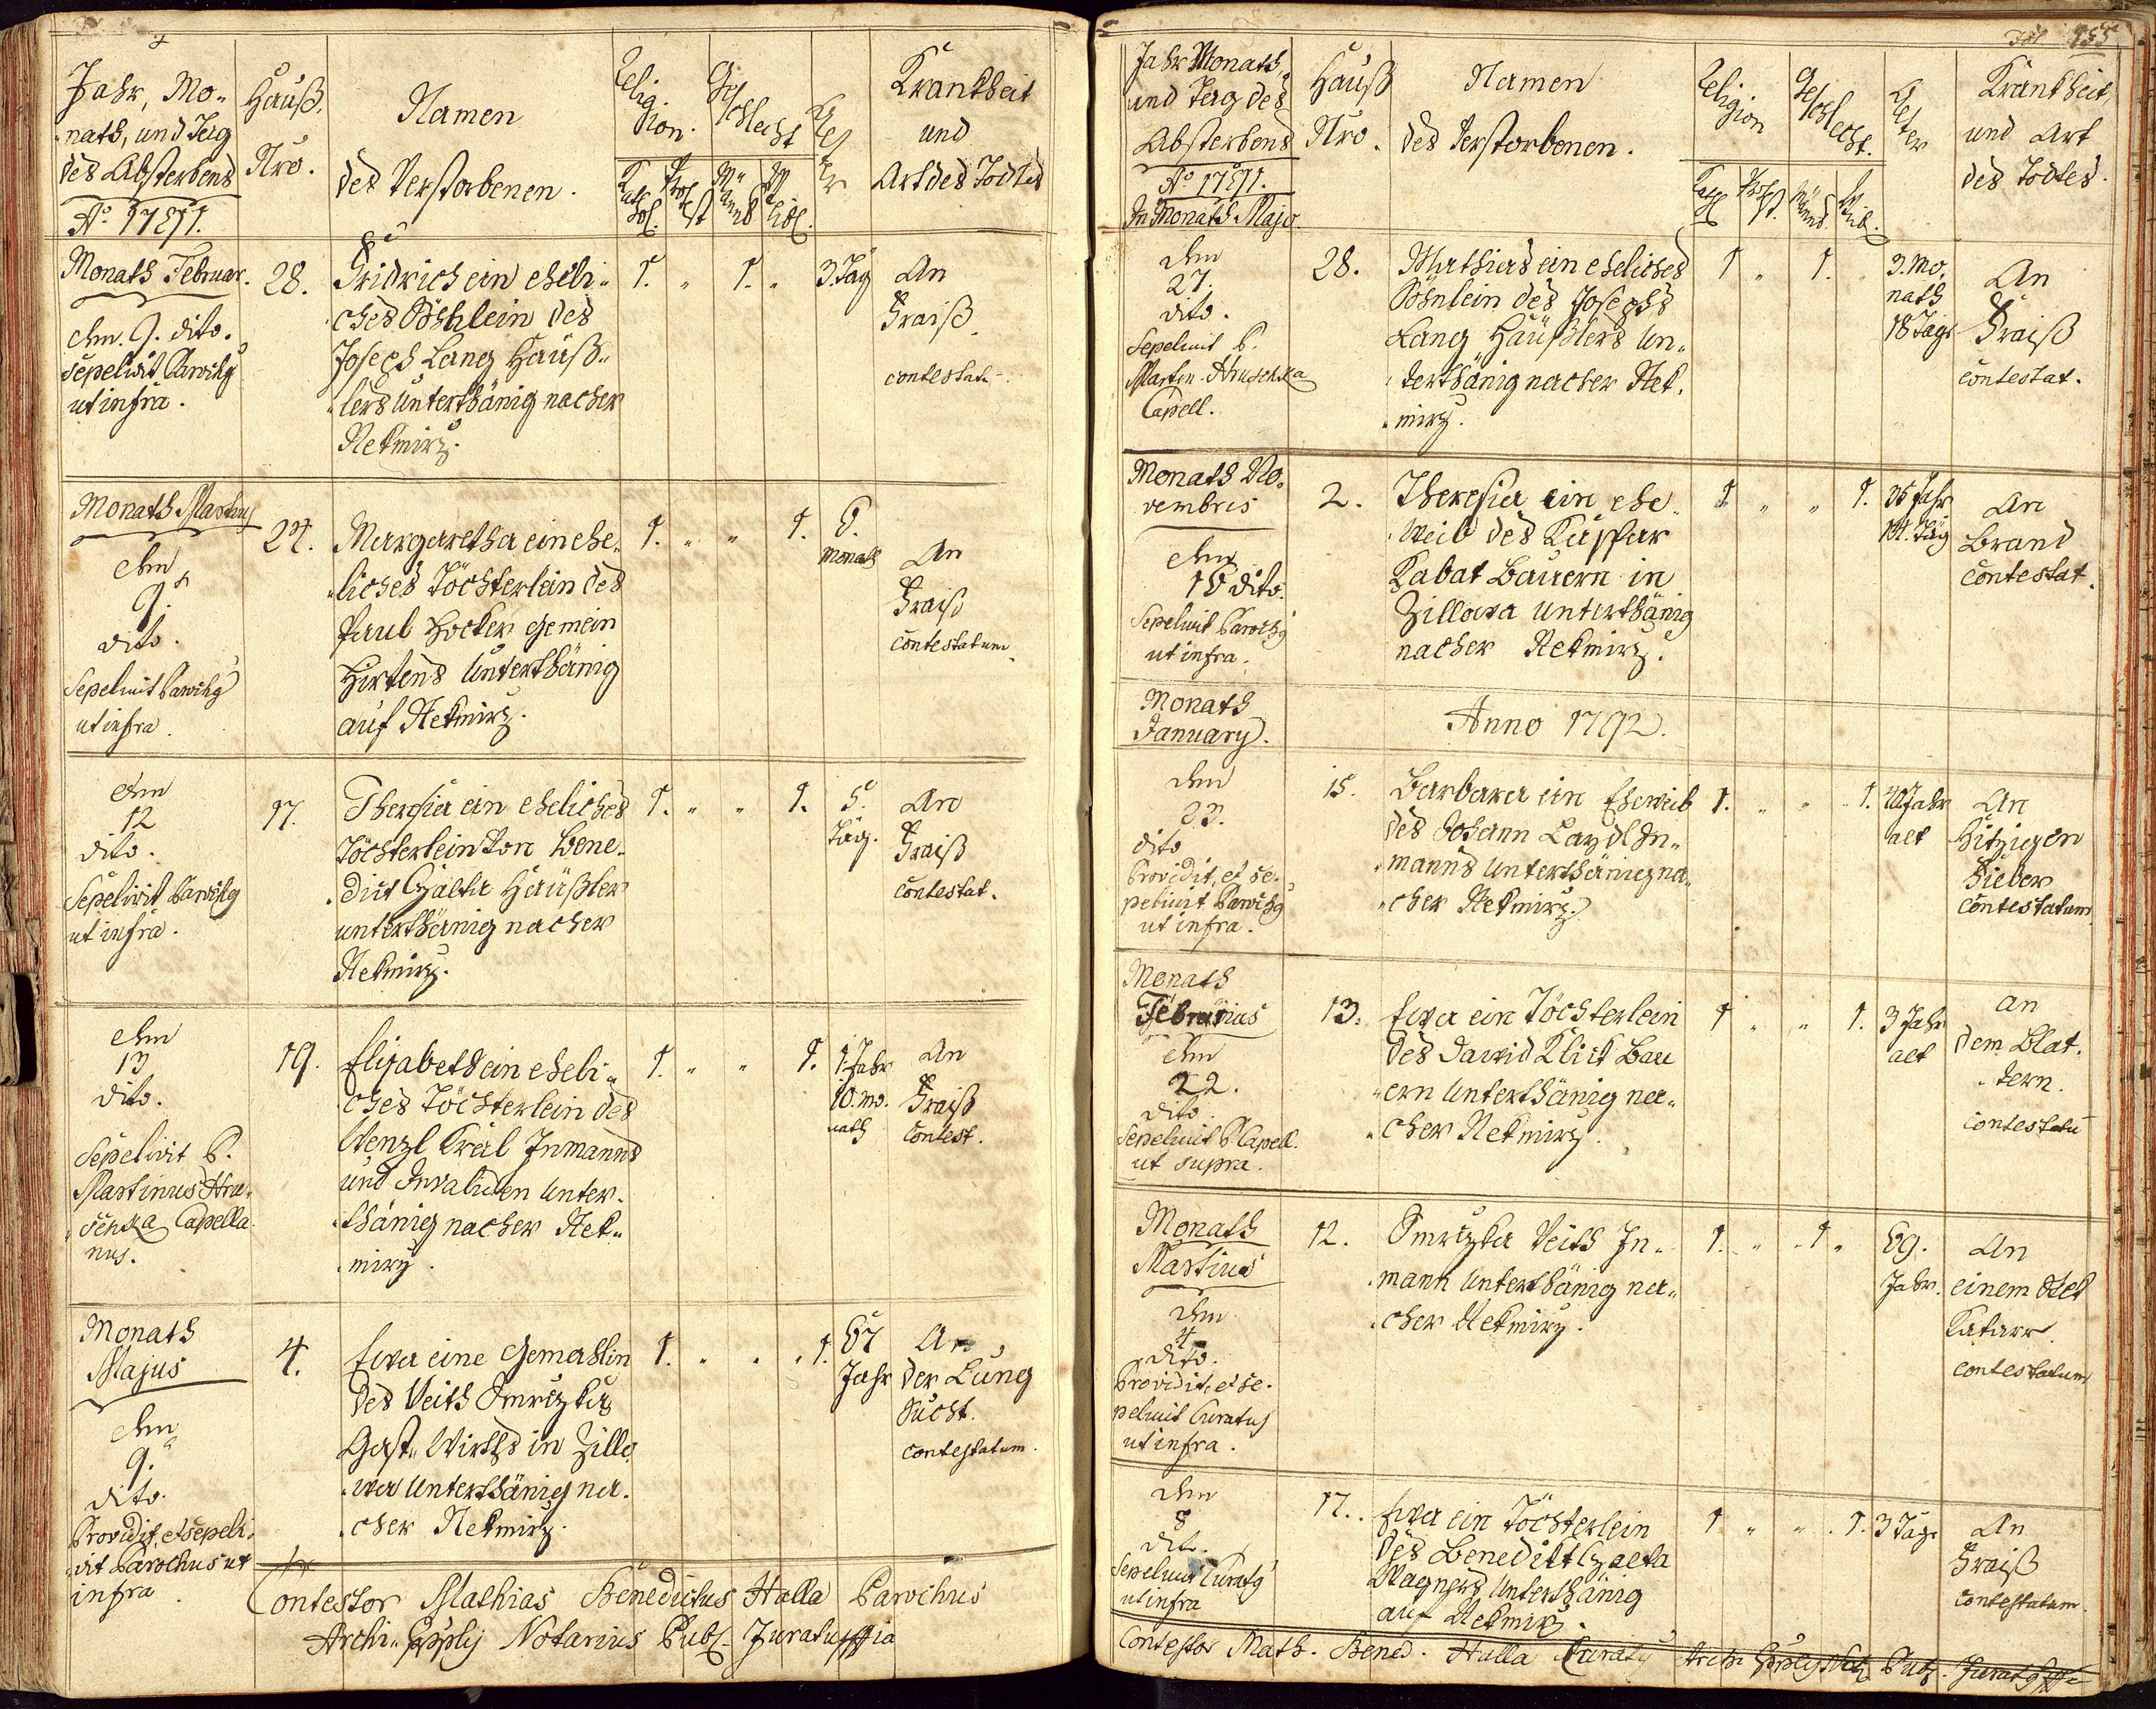 Jahr, Mo-
nath, und Tag
des Absterbens
Ao. 1791.
Hauß.
Nro.
Namen
des Verstorbenen.
Religion.
Kathol.
Protest
Geschlecht
Männl
Weibl.
Alter
Krankheit
und
Art des Todtes
Monath Februar.
den 9. dito.
sepelivit Parochg
ut infra.
28.
Fridrich ein eheli-
ches Söhnlein des
Joseph Lang Häuß-
lers unterthänig nacher
Nekmirz.
1. " 1. "
3 Täg
An
Fraiß
contestatu.
Monath Martius
den
9.
dito.
Sepelivit Parochg
ut infra.
27.
Margaretha ein ehe-
liches Töchterlein des
Paul Hocker Gemein
Hirtens unterthänig
auf Nekmirz.
1. " " 1.
6.
Monath
An
Fraiß
contestatum.
den
12
dito.
Sepelivit Parochg
ut infra.
17.
Theresia ein eheliches
Töchterlein von Bene-
dict Czalta Häußler
unterthänig nacher
Nekmirz.
1. " " 1.
5.
Täg.
An
Fraiß
contestat.
den
13
dito.
Sepelivit P.
Martinus Hru-
schka Capella
nus.
19.
Elisabeth ein eheli-
ches Töchterlein des
Wenzl Kral Inmanns
und Invaliden unter-
thänig nacher Nek-
mirz.
1. " " 1.
1 Jahr
10. mo-
nath
An
Fraiß
contest.
Monath
Majus
den
9.
dito.
Providit, et sepeli-
vit Parochus ut
infra
4.
Ewa eine Gemahlin
des Veith Smrczka
Gast-Wirths in Zillo-
wa unterthänig na-
cher Nekmirz.
1. " " 1.
67
Jahr
An
der Lung
Sucht.
contestatum.
Contestor Mathias Benedictus Halla Parochus
Archi-Epply Notarius Publ. Juratus
Fol 155
Jahr Monath,
und Tag des
Absterbens
Ao. 1791.
In Monath Majo.
Hauß
Nro.
Namen
des Verstorbenen.
Religion
Kath
Protest.
Geschlecht.
Männl
Weib.
Alter
Krankheit,
und Art
des Todtes.
den
27.
dito.
Sepelivit P.
Martin Hruschka
Capell.
28.
Mathias ein eheliches
Söhnlein des Josephs
Lang Häußlers un-
terthänig nacher Nek-
mirz.
1 " 1. "
3. Mo-
nath
18 Täge
An
Fraiß
contestat.
Monath No-
vembris
den
16 dito.
Sepelivit Parochg
ut infra.
2.
Theresia ein ehe-
weib des Kaspar
Kabat Bauern in
Zillowa unterthänig
nacher Nekmirz.
1 " " 1.
35 Jahr
14. Täg
An
Brand
contestat.
Monath
January.
Anno 1792.
den
23.
dito
Providit, et se-
pelivit Parochg
ut infra.
15.
Barbara ein Eheweib
des Johann Landl In-
manns unterthänig na-
cher Nekmirz.
1. " " 1.
40 Jahr
alt
An
Hitzigen
Fieber
contestatum
Monath
Februarius
den
22.
dito.
Sepelivit P Capell.
ut supra.
13.
Ewa ein Töchterlein
des Dawid Klick Bau
ern unterthänig na-
cher Nekmirz.
1 " " 1.
3 Jahr
alt
an
dem Blat-
tern.
contestatu
Monath
Martius
den
4
dito.
Providit, et se-
pelivit Curatus
ut infra.
12.
Smrczka Veith In-
mann unterthänig na-
cher Nekmirz.
1. " 1 "
69.
Jahr.
An
einem Stek
Katarr.
contestatum
den
8
dito.
Sepelivit Curatg
ut infra
17.
Ewa ein Töchterlein
des Benedikt Czalta
Wagners unterthänig
auf Nekmirz.
1 " " 1.
3 Täge
An
Fraiß
contestatum.
Contestor Math. Bened. Halla Curatg Archi Epply Not. Publ. Juratg